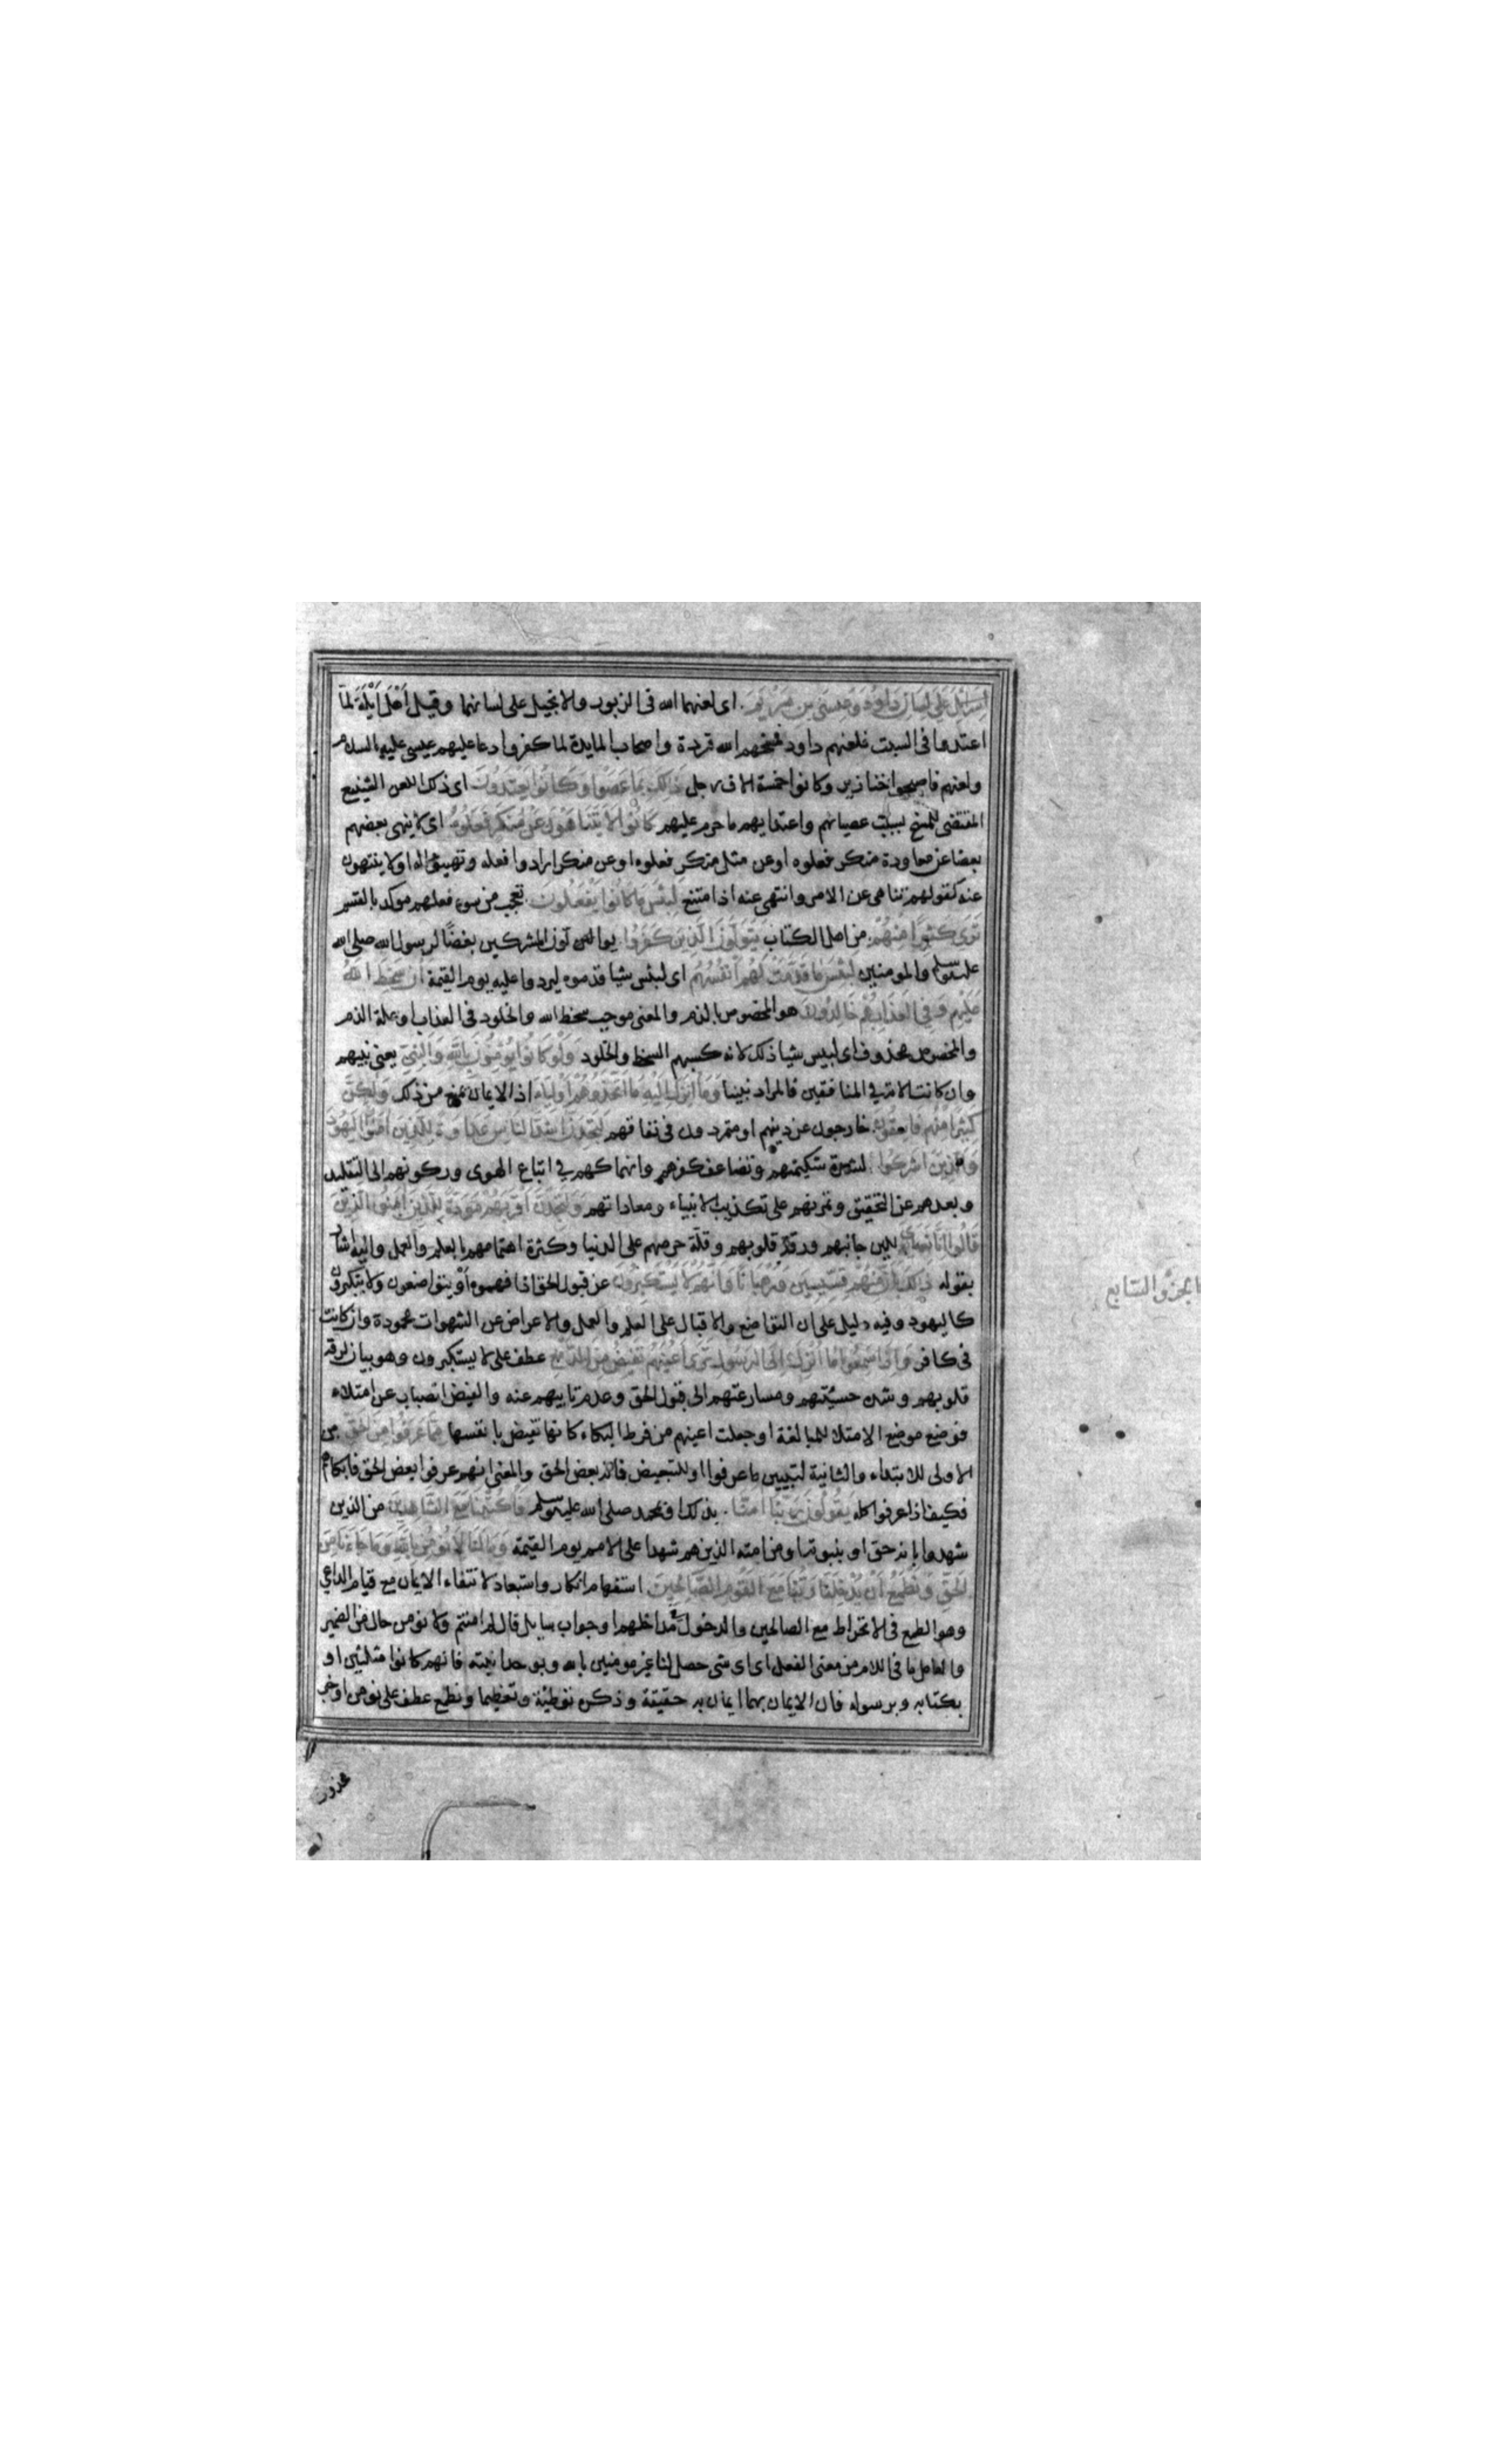 اسرائيل على لسان داود وعيسى بن مريم. اى لعنهما الله فى الزبور والانجيل على لسانهما وقيل أهل أيلة لمّا
اعتدوا فى السبت فلعنهم داود فمسخهم الله قردة واصحاب المايدة لما كفروا دعا عليهم عيسى عليه السلام
ولعنهم فاصبحوا خنازير وكانوا خمسة الاف رجل ذلك بما عصوا وكانوا يعتدون اى ذلك اللعن الشنيع
المقتضى للمسخ بسبب عصيانهم واعتدايهم ما حرم عليهم كانوا لا يتناهون عن منكر فعلوه اى لا ينهى بعضهم
بعضا عن معاودة منكر فعلوه او عن مثل منكر فعلوه او عن منكر ارادوا فعله وتهيؤا له او لا ينتهون
عنه كقولهم تناهى عن الامر وانتهى عنه اذا امتنع لبئس ما كانوا يفعلون. تعجب من سوء فعلهم موكد بالقسم
ترى كثيرا منهم. من اهل الكتاب يتولون الذين كفروا. يوالون المشركين بغضًا لرسول الله صلى الله
عليه وسلم والمومنين لبئس ما قدمت لهم أنفسهم اى لبئس شيا قدموه ليردوا عليه يوم القيمة ان سخط الله
عليهم وفى العذاب هم خالدون هو المخصوص بالذم والمعنى موجب سخط الله والخلود فى العذاب او علة الذم
والمخصوص محذوف اى لبيس شيا ذلك لانه كسبهم السخط والخلود ولو كانوا يؤمنون بالله والنبى يعنى نبيهم
وان كانت الاية فى المنافقين فالمراد نبينا وما أنزل اليه ما اتخذوهم أولياء اذ الايمان يمنع من ذلك ولكن
كثيرا منهم فاسقون. خارجون عن دينهم او متمردون فى نفاقهم لتجدن اشد الناس عداوة للذين آمنوا اليهود
والذين اشركوا لشدة شكيمتهم وتضاعف كفرهم وانهماكهم فى اتباع الهوى وركونهم الى التقليد
وبعدهم عن التحقيق وتمرنهم على تكذيب الانبياء ومعاداتهم ولتجدن أقربهم مودة للذين آمنوا الذين
قالوا انا نصارى للين جانبهم ورقة قلوبهم وقلّة حرصهم على الدنيا وكثرة اهتمامهم بالعلم والعمل واليه اشار
بقوله ذلك بأن منهم قسيسين ورهبانا وانهم لا يستكبرون عن قبول الحق اذا فهموه أو يتواضعون ولا يتكبرون
كاليهود وفيه دليل على ان التواضع والاقبال على العلم والعمل والاعراض عن الشهوات محمودة وان كانت
فى كافر واذا سمعوا ما أنزل الى الرسول ترى أعينهم تفيض من الدمع عطف على لا يستكبرون وهو بيان لرقة
قلوبهم وشدة خشيتهم ومسارعتهم الى قبول الحق وعدم تابيهم عنه والفيض انصباب عن امتلاء
فوضع موضع الامتلا للمبالغة او جعلت اعينهم من فرط البكاء كانها تفيض بانفسها مما عرفوا من الحق من
الاولى للابتداء والثانية لتبيين ما عرفوا او للتبعيض فانه بعض الحق والمعنى انهم عرفوا بعض الحق فابكاهم
فكيف اذا عرفوا كله يقولون ربنا آمنّا. بذلك او بمحمد صلى الله عليه وسلم فاكتبنا مع الشاهدين من الذين
شهدوا بانه حق او بنبوته او من امته الذين هم شهدا على الامم يوم القيمة وما لنا لا نؤمن بالله وما جاءنا من
الحق ونطمع أن يدخلنا ربنا مع القوم الصالحين. استفهام انكار واستبعاد لانتفاء الايمان مع قيام الداعي
وهو الطمع فى الانخراط مع الصالحين والدخول مداخلهم او جواب سايل قال لم امنتم ولا نومن حال من الضمير
والعامل ما فى اللام من معنى الفعل اى اى شى حصل لنا غير مومنين بالله وبوحدانيته فانهم كانوا مثلثين او
بكتابه وبرسوله فان الايمان بهما ايمان به حقيقة وذكره توطئة وتعظيما ونطمع عطف على نومن او خبر
محذوف
الجزؤ السابع